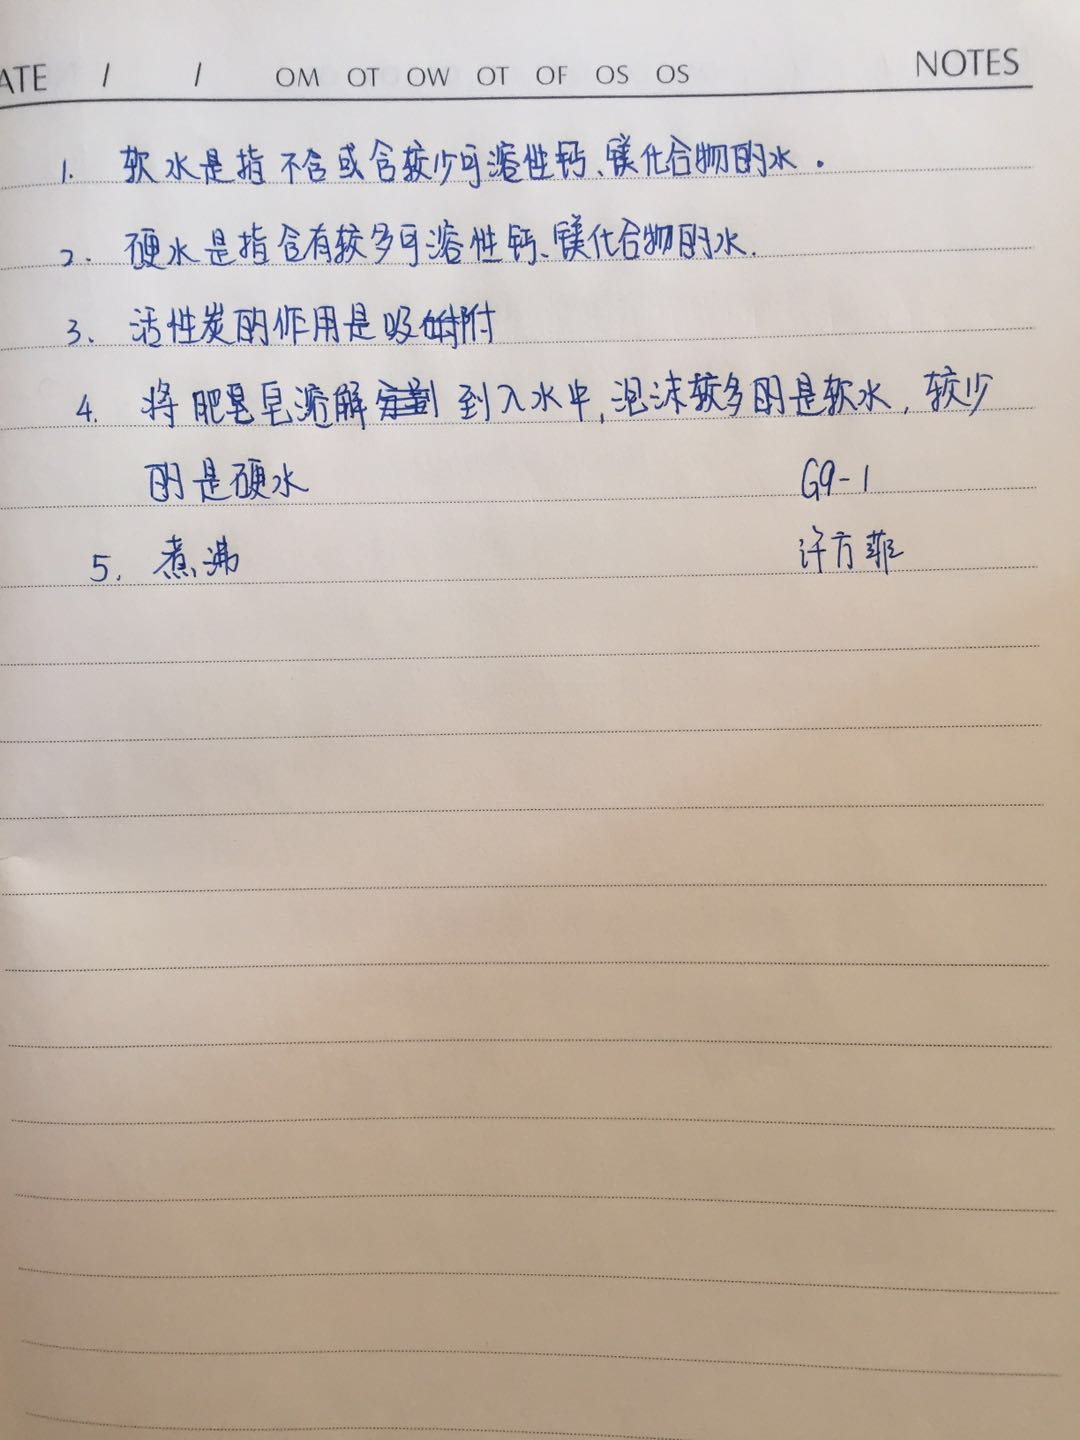 ATE / / OM OT OW OT OF OS OS NOTES
1. 软水是指不含或含较少可溶性钙、镁化合物的水.
2. 硬水是指含有较多可溶性钙、镁化合物的水.
3、活性炭的作用是吸附
4. 将肥皂溶解到入水中,泡沫较多的是软水,较少
的是硬水
G9-1
5. 煮沸
许方菲